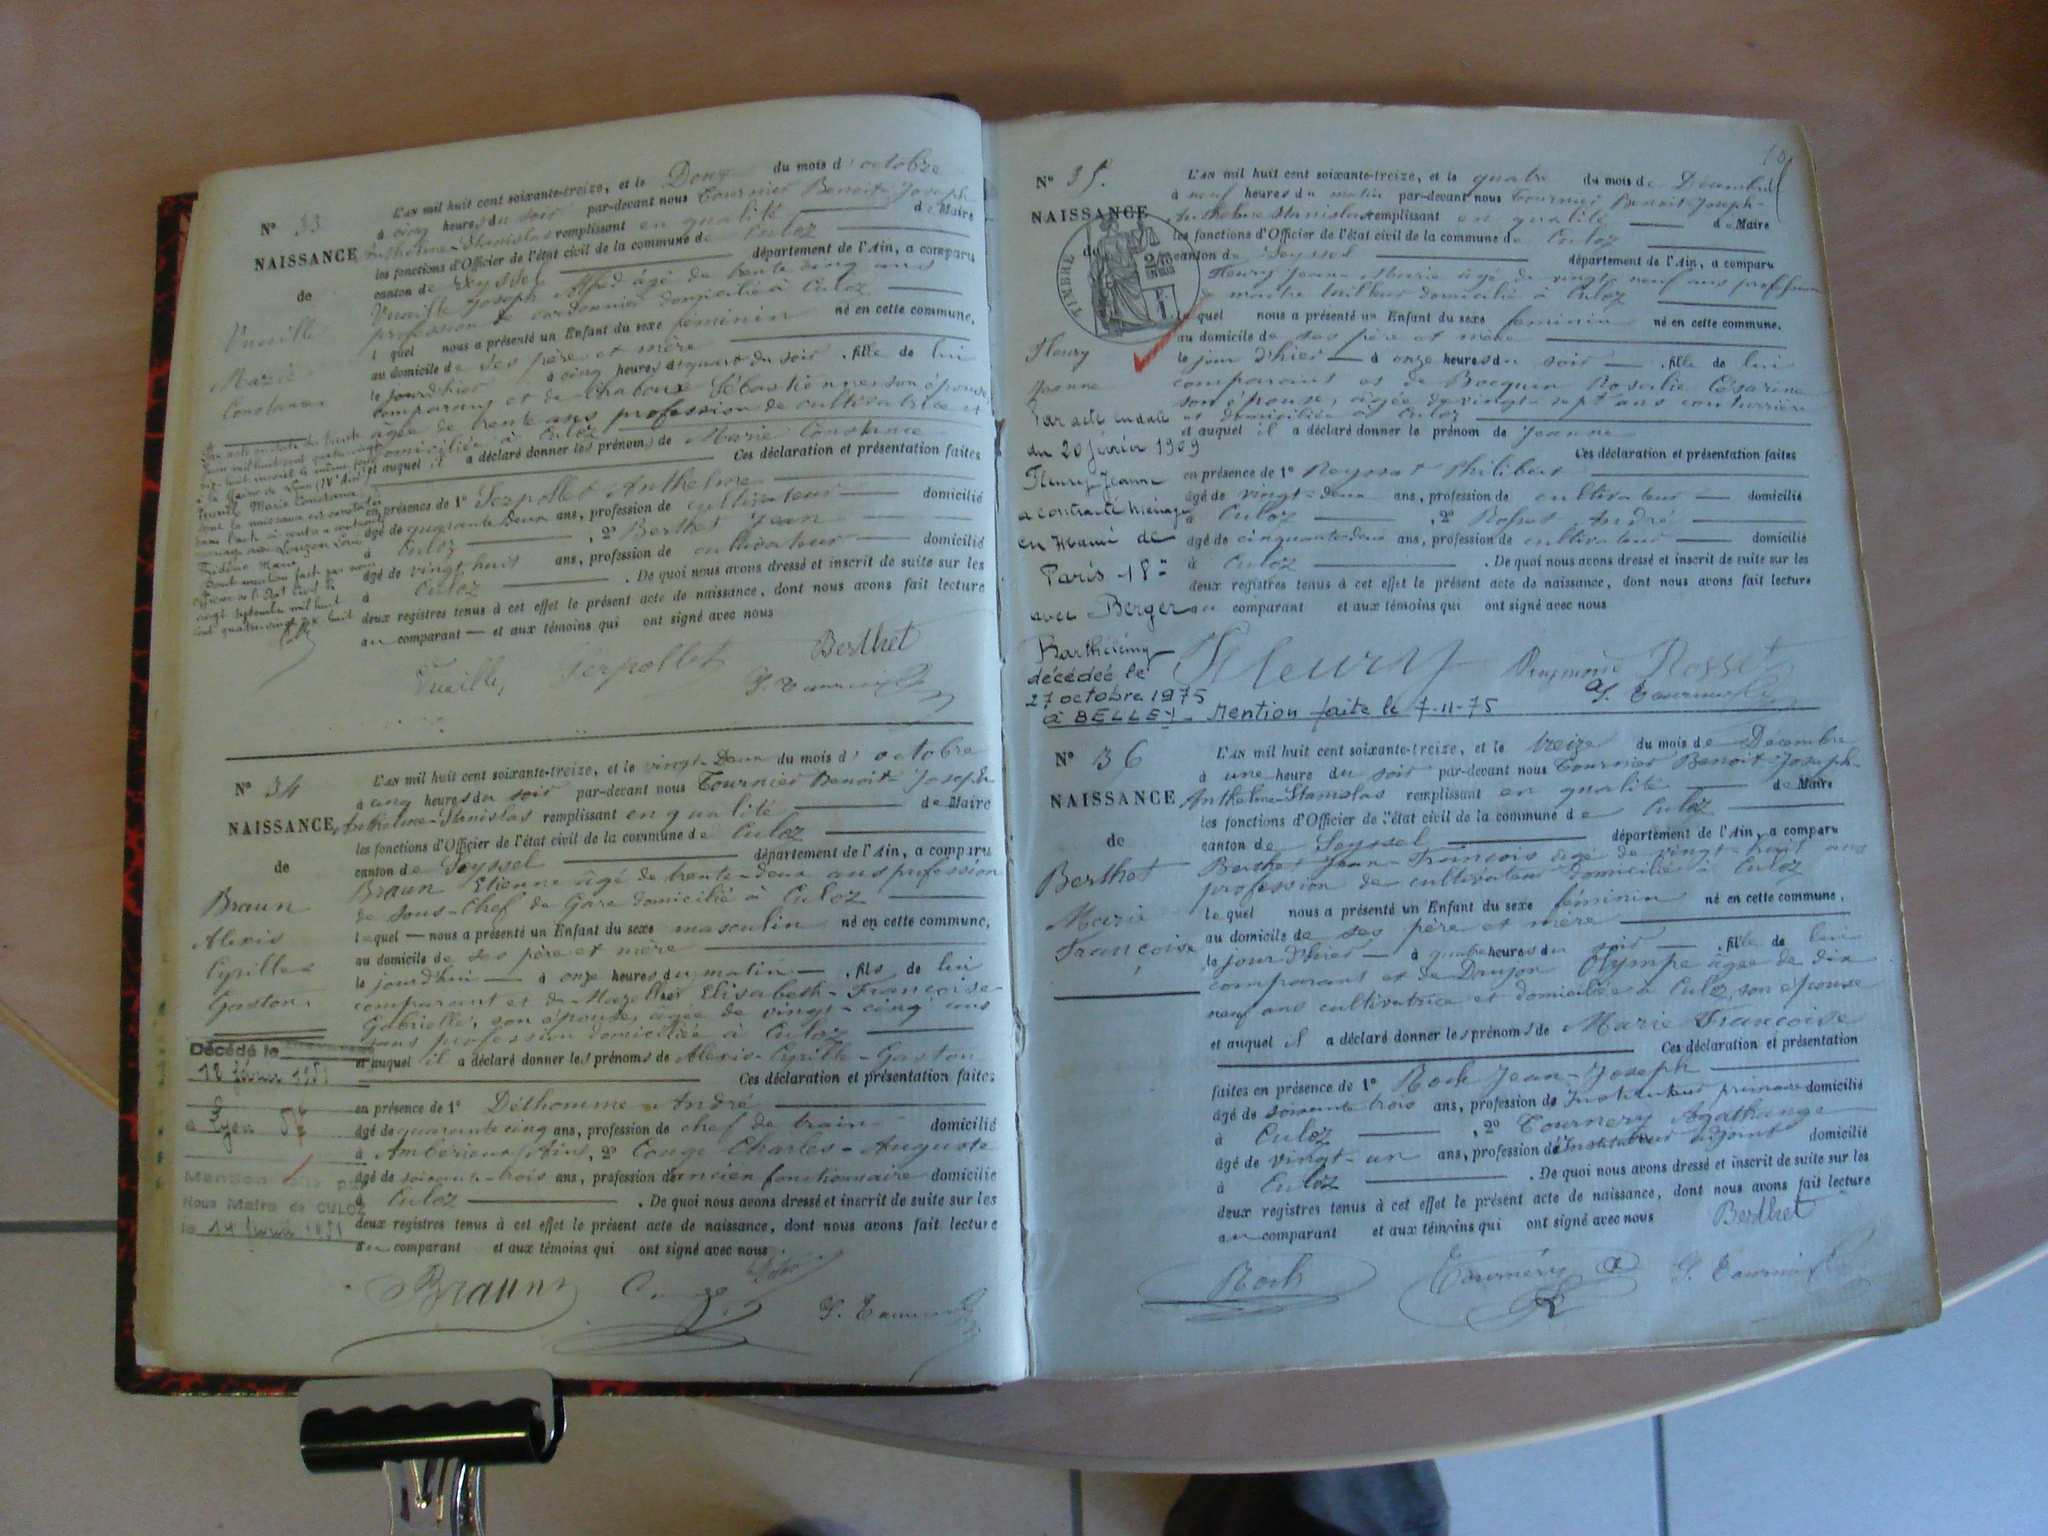 N° 33
NAISSANCE
de
Vuaille
Marie
Constance
L'AN mil huit cent soixante-treize, et le Douze du mois d'octobre
à cinq heures du soir par-devant nous Tournier Benoit-Joseph
Anthelme-Stanislas remplissant en qualité de Maire
les fonctions d'Officier de l'état civil de la commune de Culoz
canton de Seyssel département de l'Ain, a comparu
Vuaille Joseph Alfred âgé de trente cinq ans
profession de cordonnier domicilié à Culoz
lequel nous a présenté un Enfant du sexe féminin né en cette commune,
au domicile de ses père et mère
le jour d'hier à cinq heures du soir, fille de lui
comparant et de Chaboux Sébastienne son épouse,
âgée de trente ans profession de cultivatrice et
domiciliée à Culoz
et auquel il a déclaré donner les prénoms de Marie Constance
Ces déclaration et présentation faites
en présence de 1° Serpollet Anthelme
âgé de quarante deux ans, profession de cultivateur domicilié
à Culoz, 2° Berthet Jean
âgé de vingt huit ans, profession de cultivateur domicilié
à Culoz. De quoi nous avons dressé et inscrit de suite sur les
deux registres tenus à cet effet le présent acte de naissance, dont nous avons fait lecture
au comparant et aux témoins qui ont signé avec nous
Vuaille, Serpollet Berthet
S. Tournier
N° 34
NAISSANCE
de
Braun
Alexis
Cyrille
Gaston
Décédé le
12 février 1951
à Lyon 3e
Mention faite par
Nous Maire de CULOZ
le 14 février 1951
L'AN mil huit cent soixante-treize, et le vingt-Deux du mois d'octobre
à cinq heures du soir par-devant nous Tournier Benoit-Joseph
Anthelme-Stanislas remplissant en qualité de Maire
les fonctions d'Officier de l'état civil de la commune de Culoz
canton de Seyssel département de l'Ain, a comparu
Braun Etienne âgé de trente-deux ans profession
de sous-chef de Gare domicilié à Culoz
lequel nous a présenté un Enfant du sexe masculin né en cette commune,
au domicile de ses père et mère
le jourd'hui à onze heures du matin, fils de lui
comparant et de Mazellier Elisabeth-Françoise
Gabrielle, son épouse, âgée de vingt-cinq ans
sans profession domiciliée à Culoz
et auquel il a déclaré donner les prénoms de Alexis-Cyrille-Gaston
Ces déclaration et présentation faites
en présence de 1° Délhomme André
âgé de quarante cinq ans, profession de chef de train domicilié
à Ambérieux (Ain), 2° Conge Charles-Auguste
âgé de soixante-trois ans, profession d'ancien fonctionnaire domicilié
à Culoz. De quoi nous avons dressé et inscrit de suite sur les
deux registres tenus à cet effet le présent acte de naissance, dont nous avons fait lecture
au comparant et aux témoins qui ont signé avec nous
Braun
S. Tournier
N° 35.
NAISSANCE
de
TIMBRE
Fleury
Jeanne
Par acte en date
du 20 février 1909
Fleury Jeanne
a contracté mariage
en Mairie de
Paris-18e
avec Berger
Barthélémy
décédée le
27 octobre 1975
à BELLEY - Mention faite le 7-11-75
L'AN mil huit cent soixante-treize, et le quatre du mois de Décembre
à neuf heures du matin par-devant nous Tournier Benoit-Joseph-
Anthelme Stanislas remplissant en qualité de Maire
les fonctions d'Officier de l'état civil de la commune de Culoz
canton de Seyssel département de l'Ain, a comparu
Fleury Jean-Marie âgé de vingt neuf ans profession
de maître tailleur domicilié à Culoz
lequel nous a présenté un Enfant du sexe féminin né en cette commune,
au domicile de ses père et mère
le jour d'hier à onze heures du soir, fille de lui
comparant et de Bocquin Rosalie Césarine
son épouse, âgée de vingt-sept ans couturière
et domiciliée à Culoz
et auquel il a déclaré donner le prénom de Jeanne
Ces déclaration et présentation faites
en présence de 1° Philibert
âgé de vingt-deux ans, profession de cultivateur domicilié
à Culoz, 2° Rosset André
âgé de cinquante-deux ans, profession de cultivateur domicilié
à Culoz. De quoi nous avons dressé et inscrit de suite sur les
deux registres tenus à cet effet le présent acte de naissance, dont nous avons fait lecture
au comparant et aux témoins qui ont signé avec nous
Fleury Rosset
S. Tournier
N° 36
NAISSANCE
de
Berthet
Marie
Françoise
L'AN mil huit cent soixante-treize, et le treize du mois de Décembre
à une heure du soir par-devant nous Tournier Benoit-Joseph-
Anthelme-Stanislas remplissant en qualité de Maire
les fonctions d'Officier de l'état civil de la commune de Culoz
canton de Seyssel département de l'Ain, a comparu
Berthet Jean-François âgé de vingt-huit ans
profession de cultivateur domicilié à Culoz
lequel nous a présenté un Enfant du sexe féminin né en cette commune,
au domicile de ses père et mère
le jour d'hier à quatre heures du soir, fille de lui
comparant et de Drujon Olympe âgée de dix
neuf ans cultivatrice et domiciliée à Culoz, son épouse
et auquel il a déclaré donner les prénoms de Marie Françoise
Ces déclaration et présentation
faites en présence de 1° Roch Jean-Joseph
âgé de soixante trois ans, profession de Instituteur primaire domicilié
à Culoz, 2° Tournery Agathange
âgé de vingt-un ans, profession de Instituteur adjoint domicilié
à Culoz. De quoi nous avons dressé et inscrit de suite sur les
deux registres tenus à cet effet le présent acte de naissance, dont nous avons fait lecture
au comparant et aux témoins qui ont signé avec nous Berthet
Roch S. Tournier